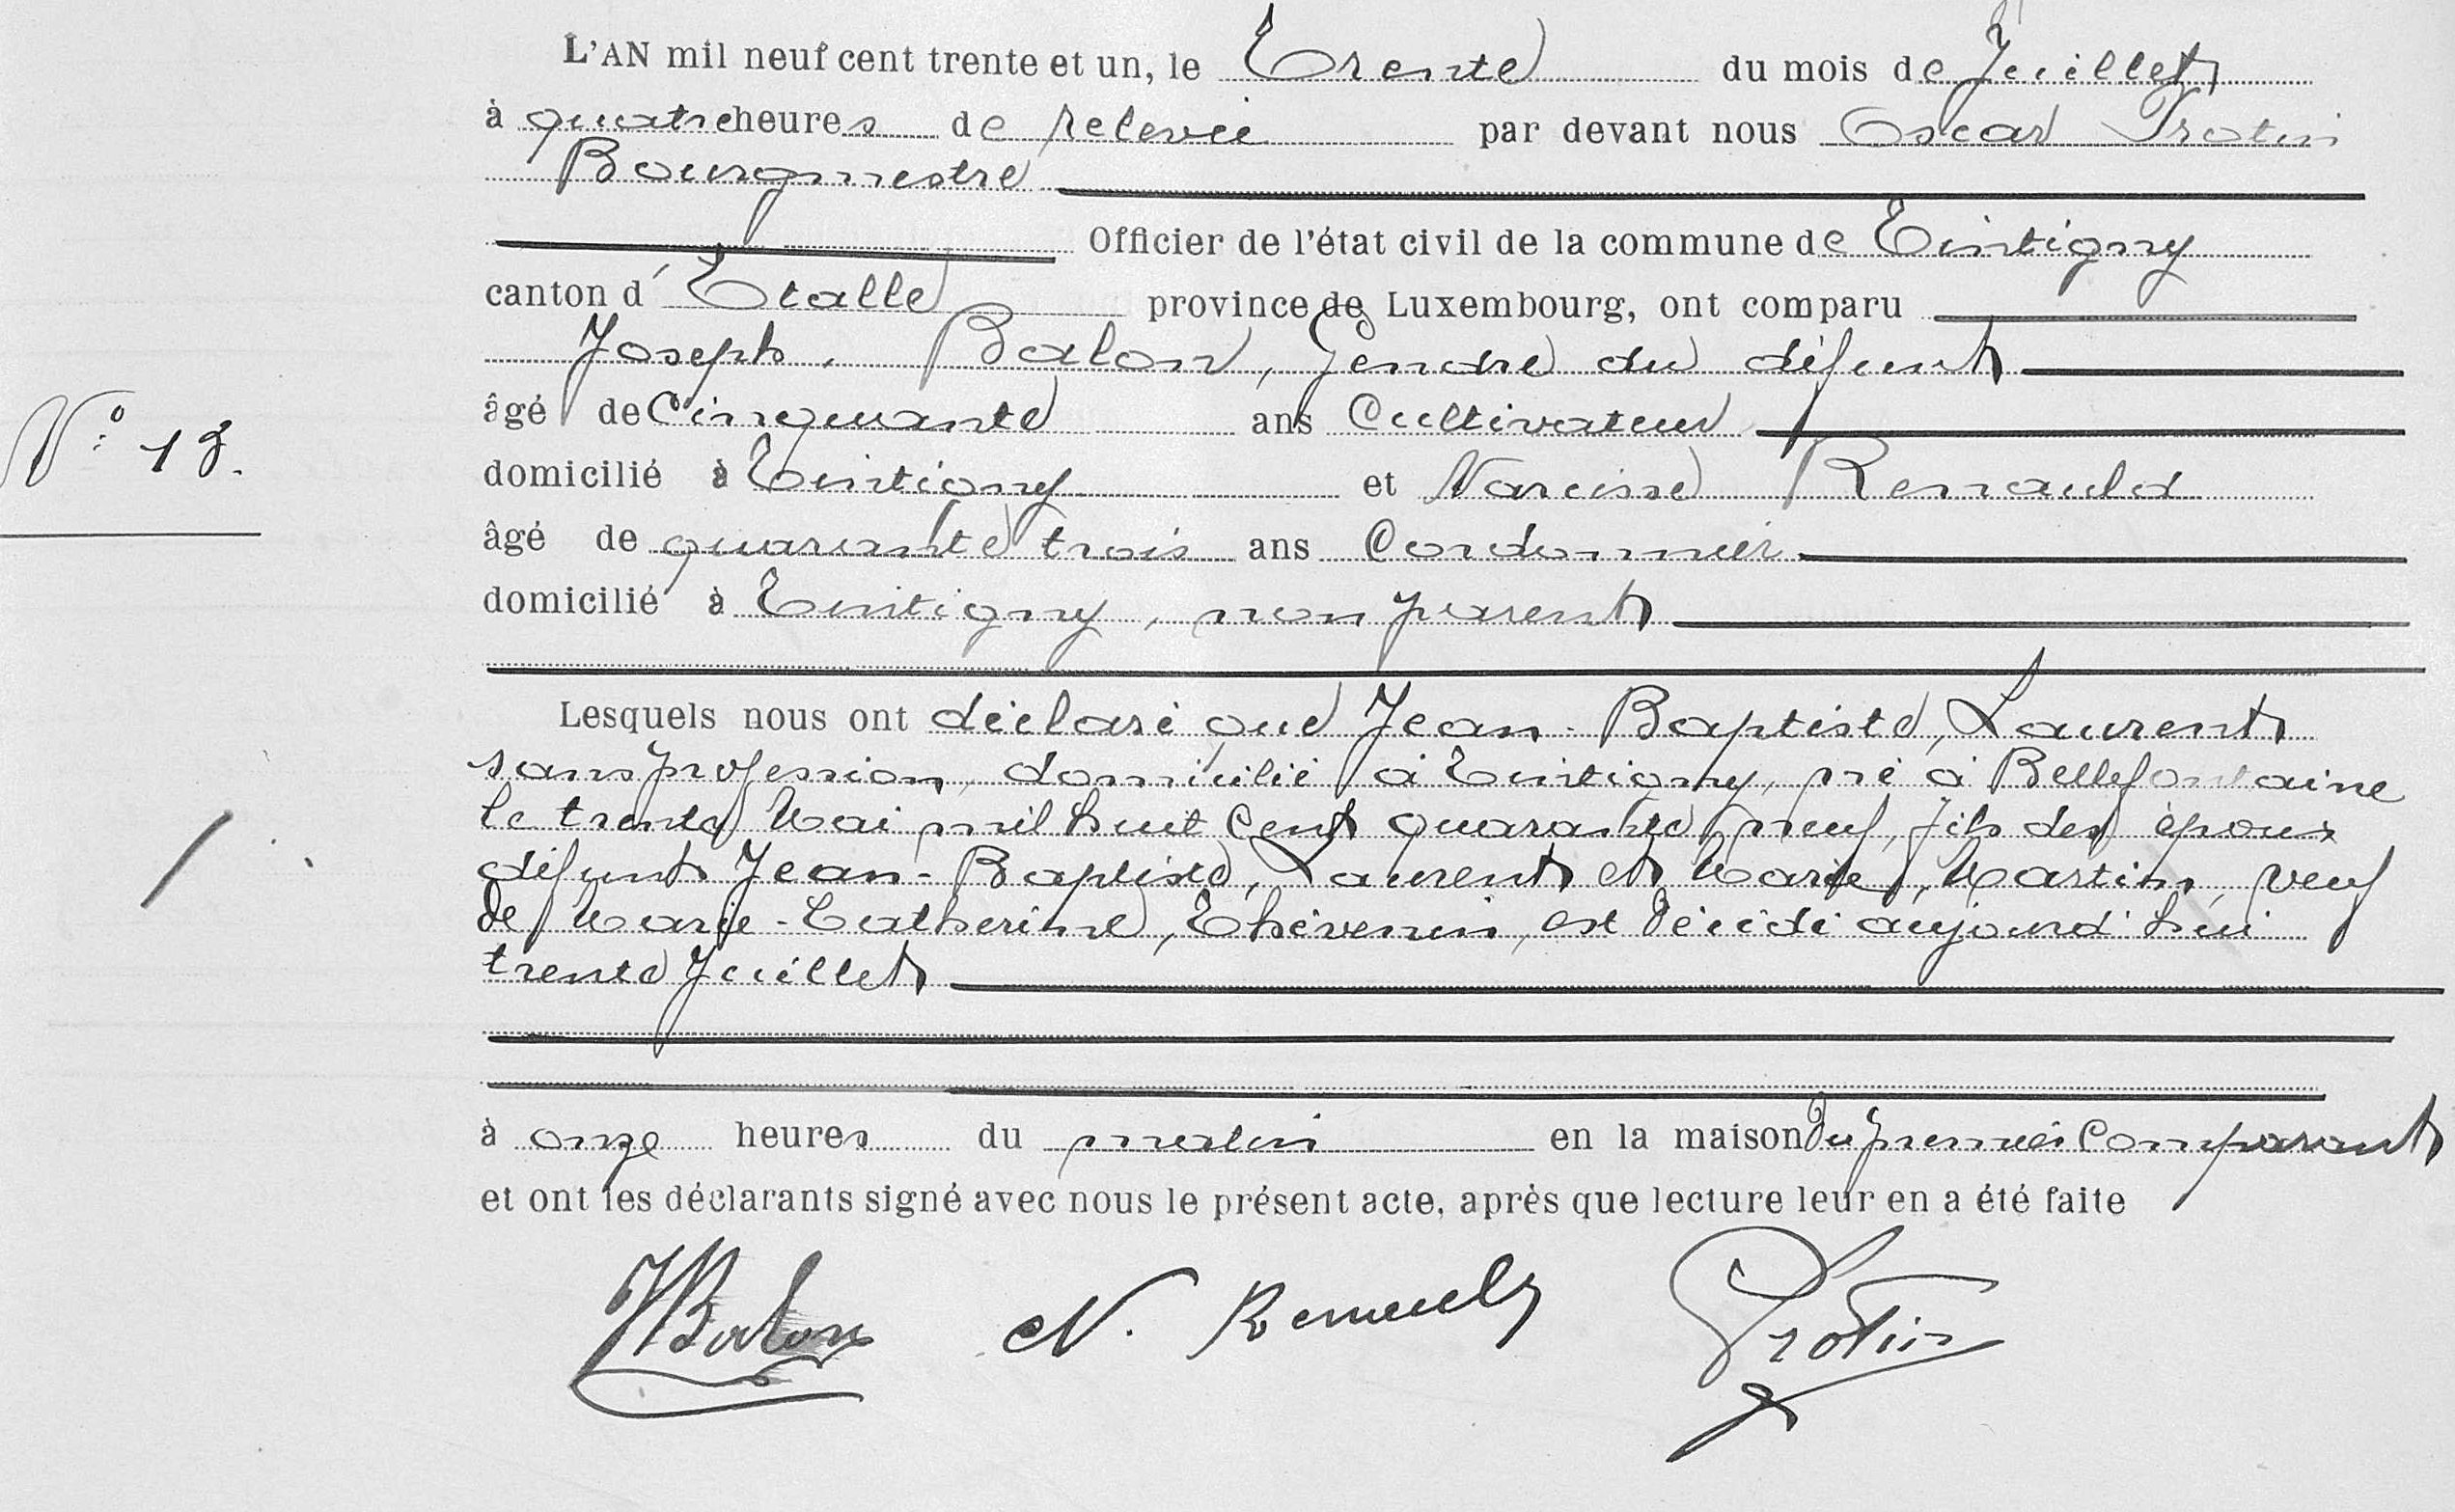 L'AN mil neuf cent trente et un, le Trente du mois de Juillet
à quatre heures de relevée par devant nous Oscar Protin
Bourgmestre
Officier de l'état civil de la commune de Tintigny
canton d'Etalle province de Luxembourg, ont comparu
Joseph, Balon, Gendre du défunt
âgé de Cinquante ans Cultivateur
N° 18.
domicilié à Tintigny et Narcisse Renauld
âgé de quarante trois ans Cordonnier
domicilié à Tintigny, non parent
Lesquels nous ont déclaré que Jean-Baptiste, Laurent
sans profession, domicilié à Tintigny, né à Bellefontaine
le trente Mai mil huit Cent quarante neuf, fils des époux
défunts Jean-Baptiste, Laurent et Marie, Martin, veuf
de Marie-Catherine, Thévenin, est décédé aujourd'hui
trente Juillet
à onze heures du matin en la maison du premier Comparant
et ont les déclarants signé avec nous le présent acte, après que lecture leur en a été faite
JBalon N. Renauld Protin